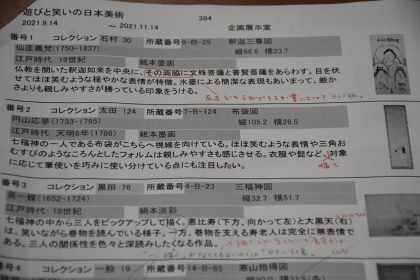 遊びと笑いの日本美術
2021.9.14 ～ 2021.11.14
394
企画展示室
番号1 コレクション 石村 30 所蔵番号 9-B-25 釈迦三尊図
仙厓義梵(1750-1837) 縦66.6 横23.7
江戸時代 19世紀 紙本墨画
仏教を開いた釈迦如来を中央に、その両脇に文殊菩薩と普賢菩薩をあらわす。目を伏
せてほほ笑むような穏やかな表情が特徴。水墨による簡潔な表現もあいまって、厳か
さよりも親しみやすさが勝っている印象をうける。
番号2 コレクション 太田 124 所蔵番号 7-B-124 布袋図
円山応挙(1733-1795) 縦105.2 横28.5
江戸時代 天明6年(1786) 紙本墨画
七福神の一人である布袋がこちらへ視線を向けている。ほほ笑むような表情や三角お
むすびのようなころんとしたフォルムは親しみやすさも感じさせる。衣服や髭など、対象
に応じて筆使いを巧みに使い分けている点にも注目したい。
描く
番号3 コレクション 黒田 76 所蔵番号 4-B-23 三福神図
英一蝶(1652-1724) 縦32.7 横51.7
江戸時代 18世紀 絹本淡彩
七福神の中から三人をピックアップして描く。恵比寿(下方、向かって左)と大黒天(右)
は、笑いながら巻物を読んでいる様子。一方、巻物を支える寿老人は完全に無表情で
ある。三人の関係性を色々と深読みしたくなる作品。
番号4 コレクション 一般 19 所蔵番号 14-B-65 寒山拾得図